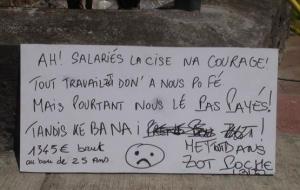 AH! SALARIÉS LA CISE NA COURAGE!
TOUT TRAVAIL DON' A NOUS PO FÉ
MAIS POURTANT NOUS LÉ PAS PAYÉS!
TANDIS KE BANA i
1345€ brut
au bou de 25 Ans
METTD DANS
ZOT POCHE